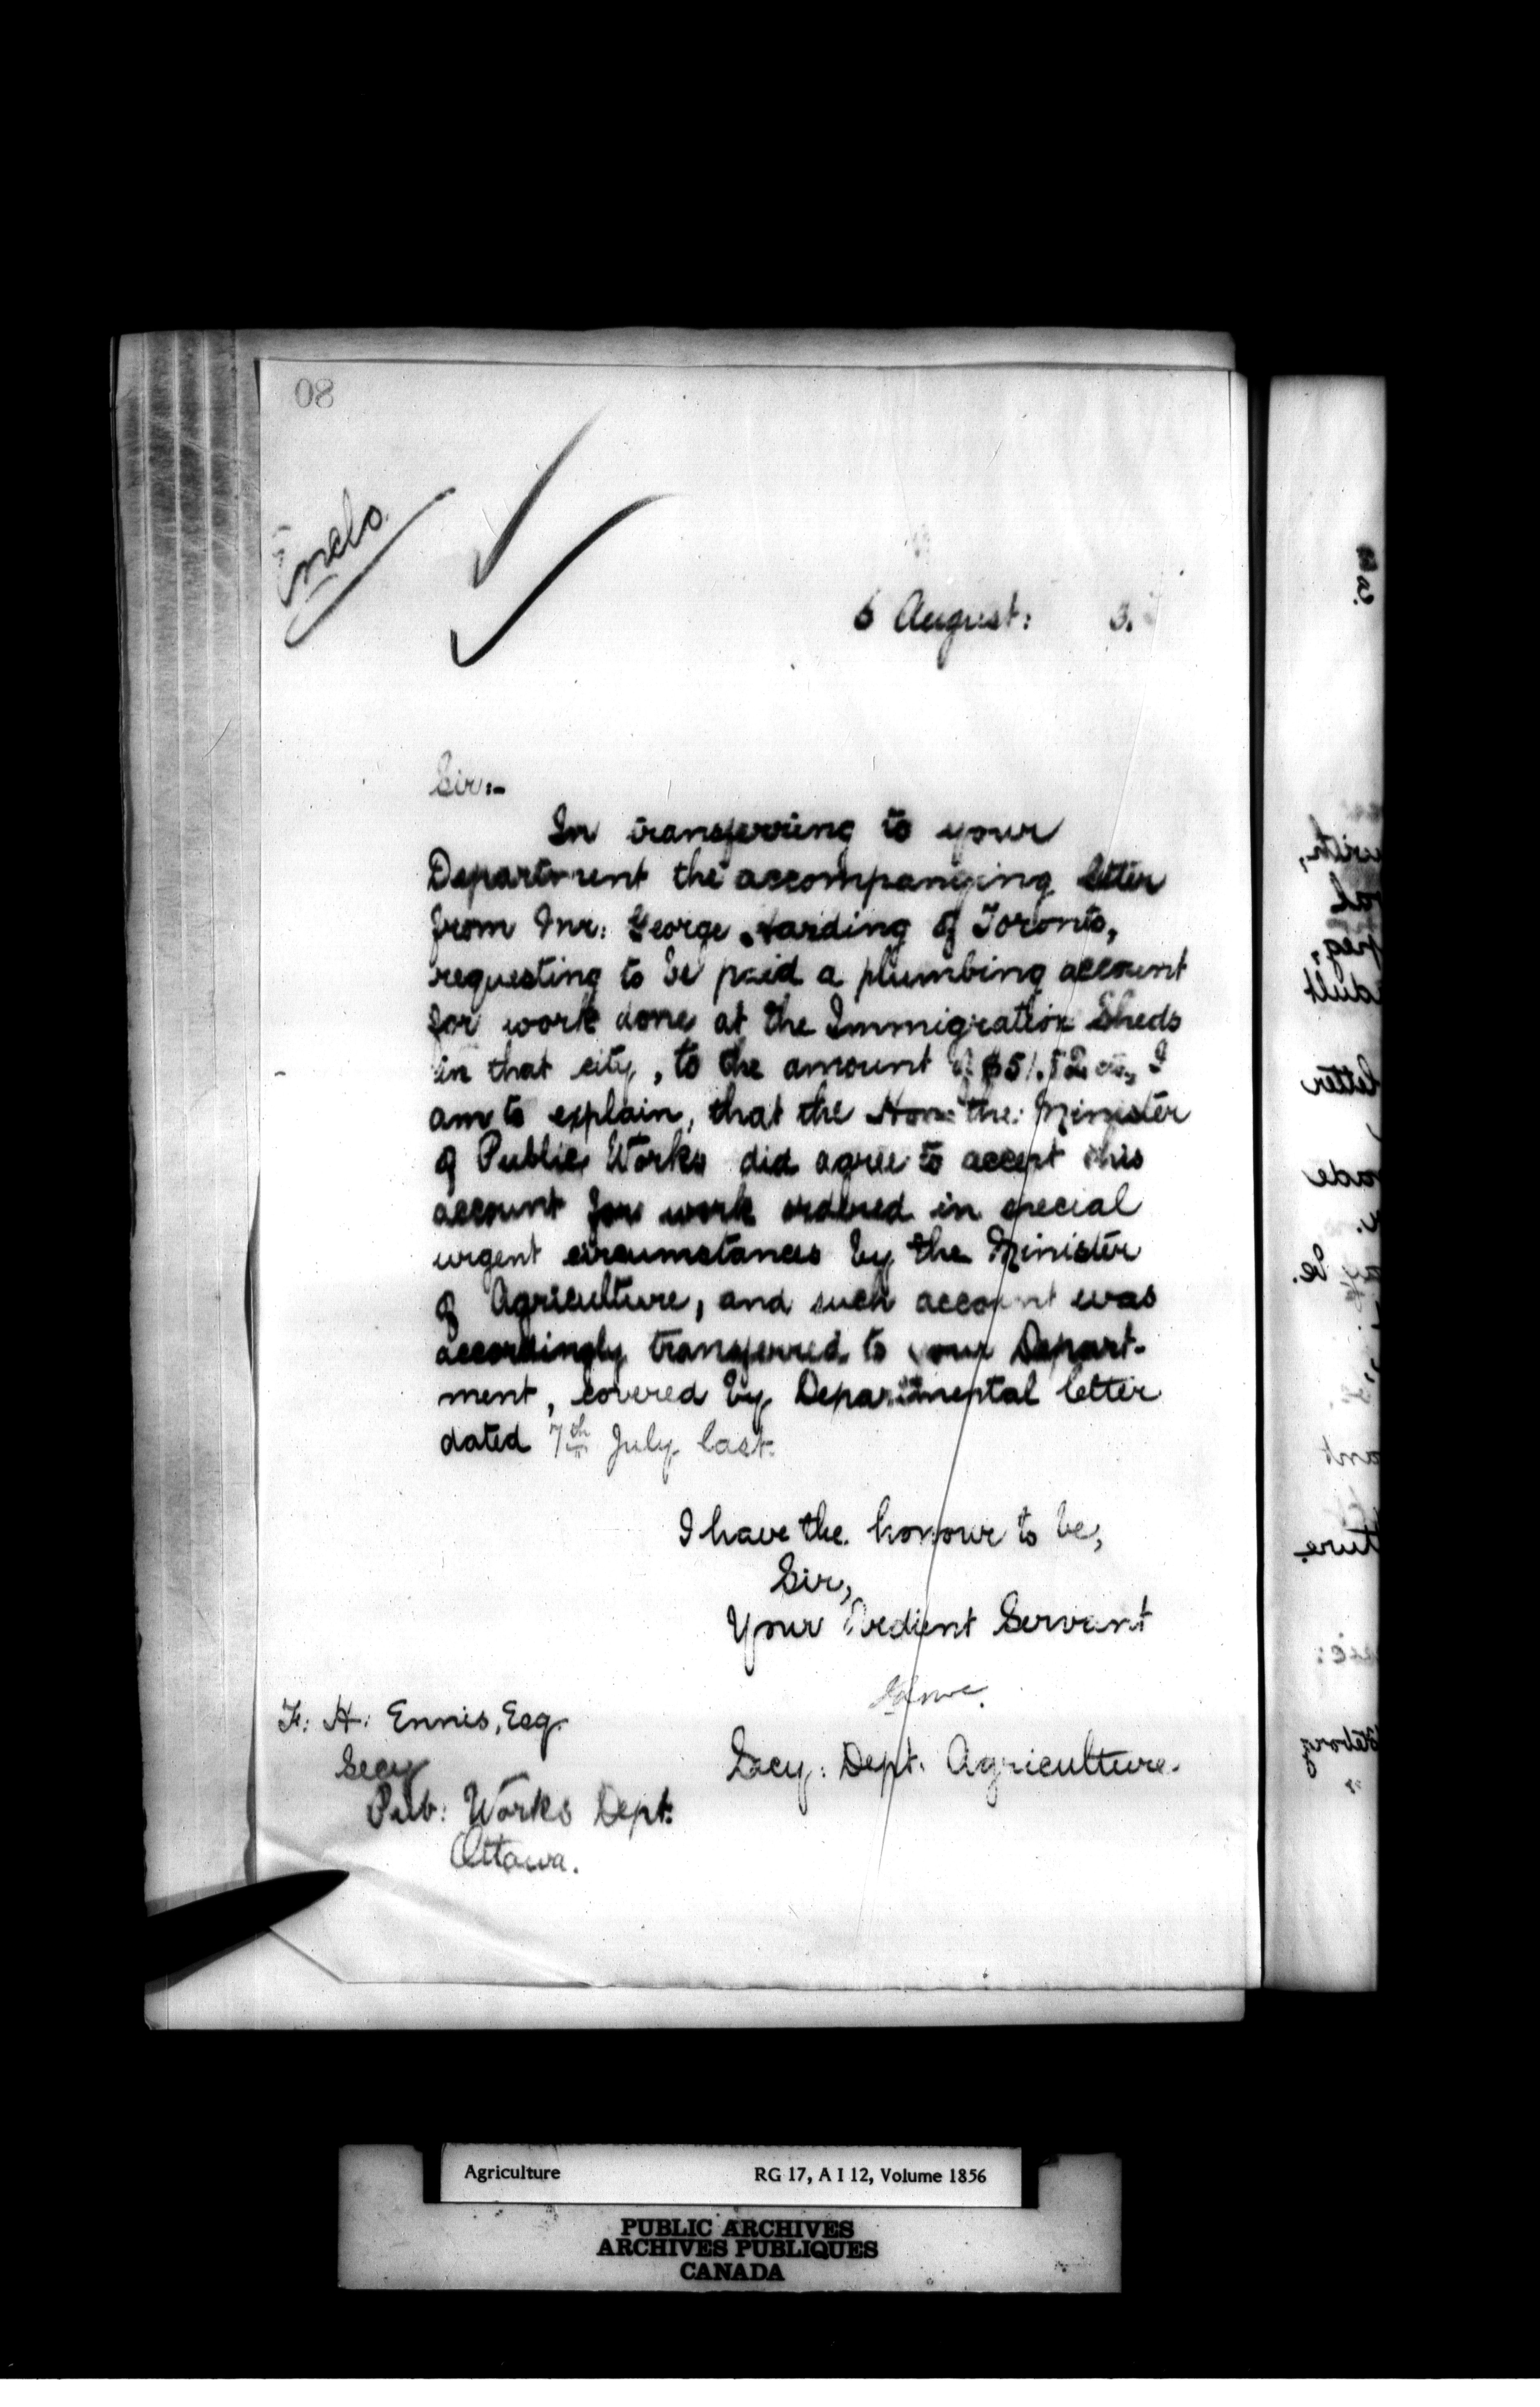 08
Encls.
6 August: 3.
Sir:-
In transferring to your
Department the accompanying letter
from Mr: George Harding of Toronto,
requesting to be paid a plumbing account
for work done at the Immigration Sheds
in that city, to the amount of $51.52 cts, I
am to explain, that the Hon: the: Minister
of Public Works did agree to accept this
account for work ordered in special
urgent circumstances by the Minister
of Agriculture, and such account was
accordingly transferred to your Depart-
ment, covered by Departmental letter
dated 7th July last.
I have the honour to be,
Sir,
Your Obedient Servant
Lowe.
Secy: Dept. Agriculture.
F: H: Ennis, Esq.
Secy
Pub: Works Dept:
Ottawa.
letter
Agriculture RG 17, A I 12, Volume 1856
PUBLIC ARCHIVES
ARCHIVES PUBLIQUES
CANADA